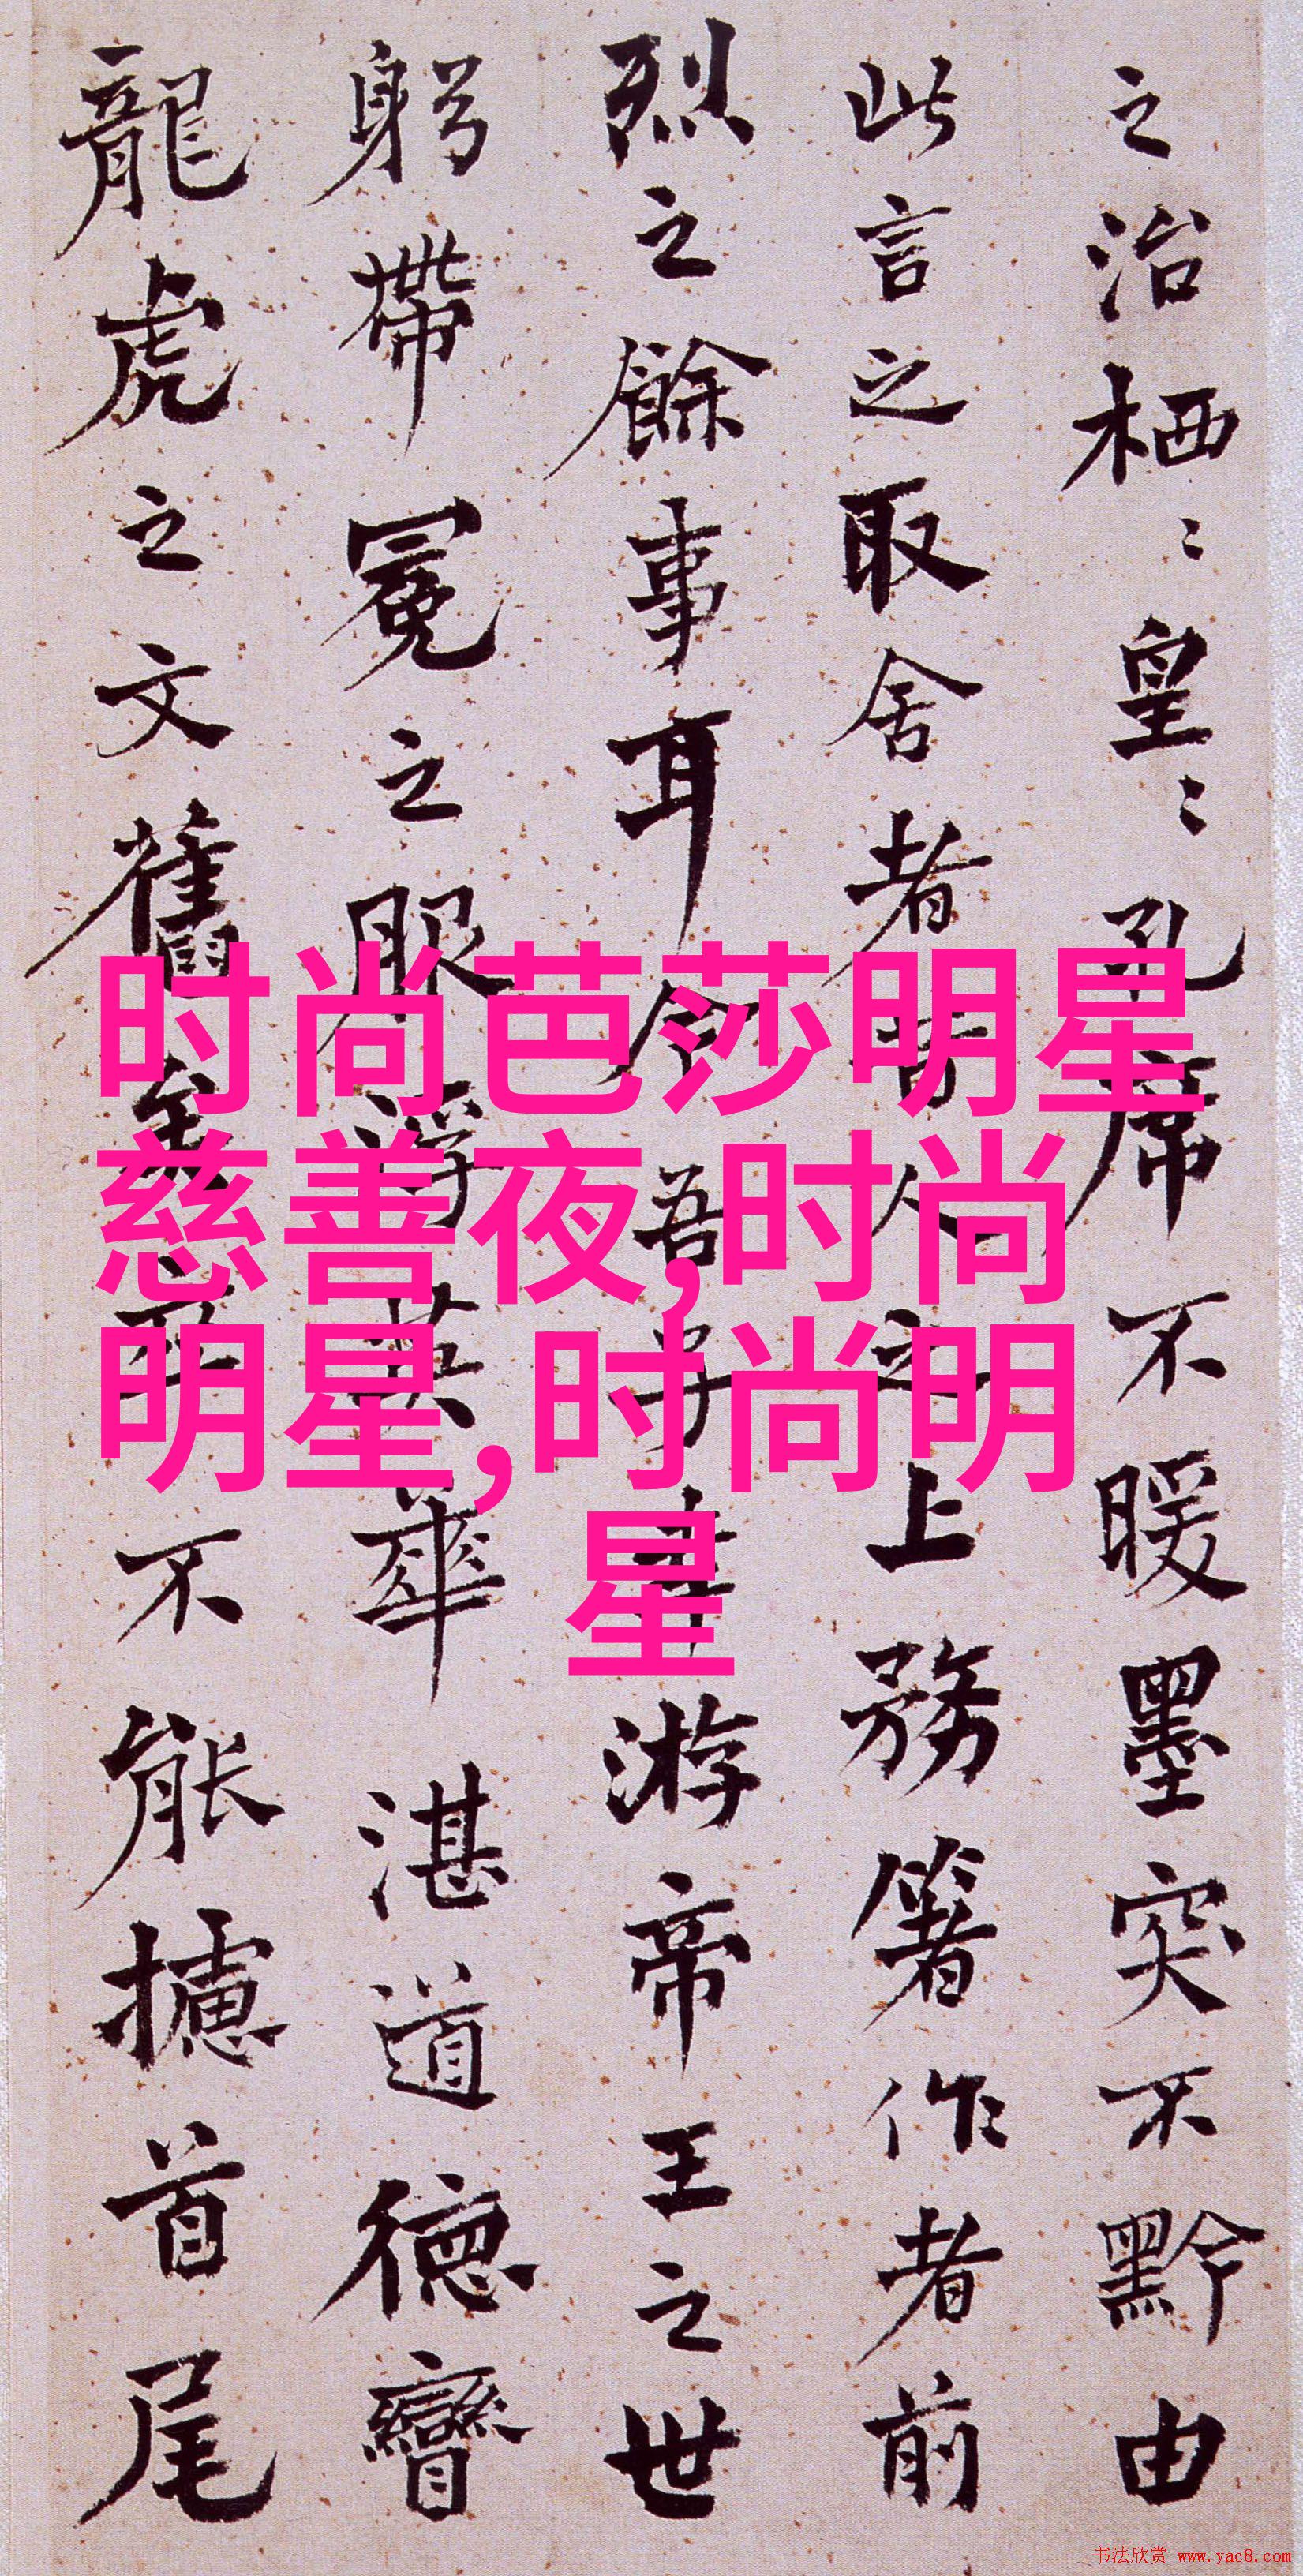 之治栖〻皇〻孔席不暖墨突不黔由
此言之取舍者昔人之上務箸作者前
烈之餘事耳今吾子幸游帝王之世
躬帶冕之服浮英華湛道德矕
龍虎之文舊矣不能攄首尾
时尚芭莎明星
慈善夜,时尚
明星,时尚明
星
书法欣赏 www.yac8.com